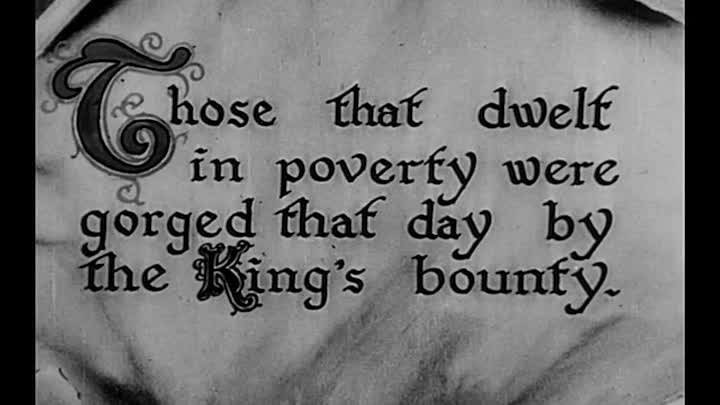 Those that dwelt
in poverty were
gorged that day by
the King's bounty.